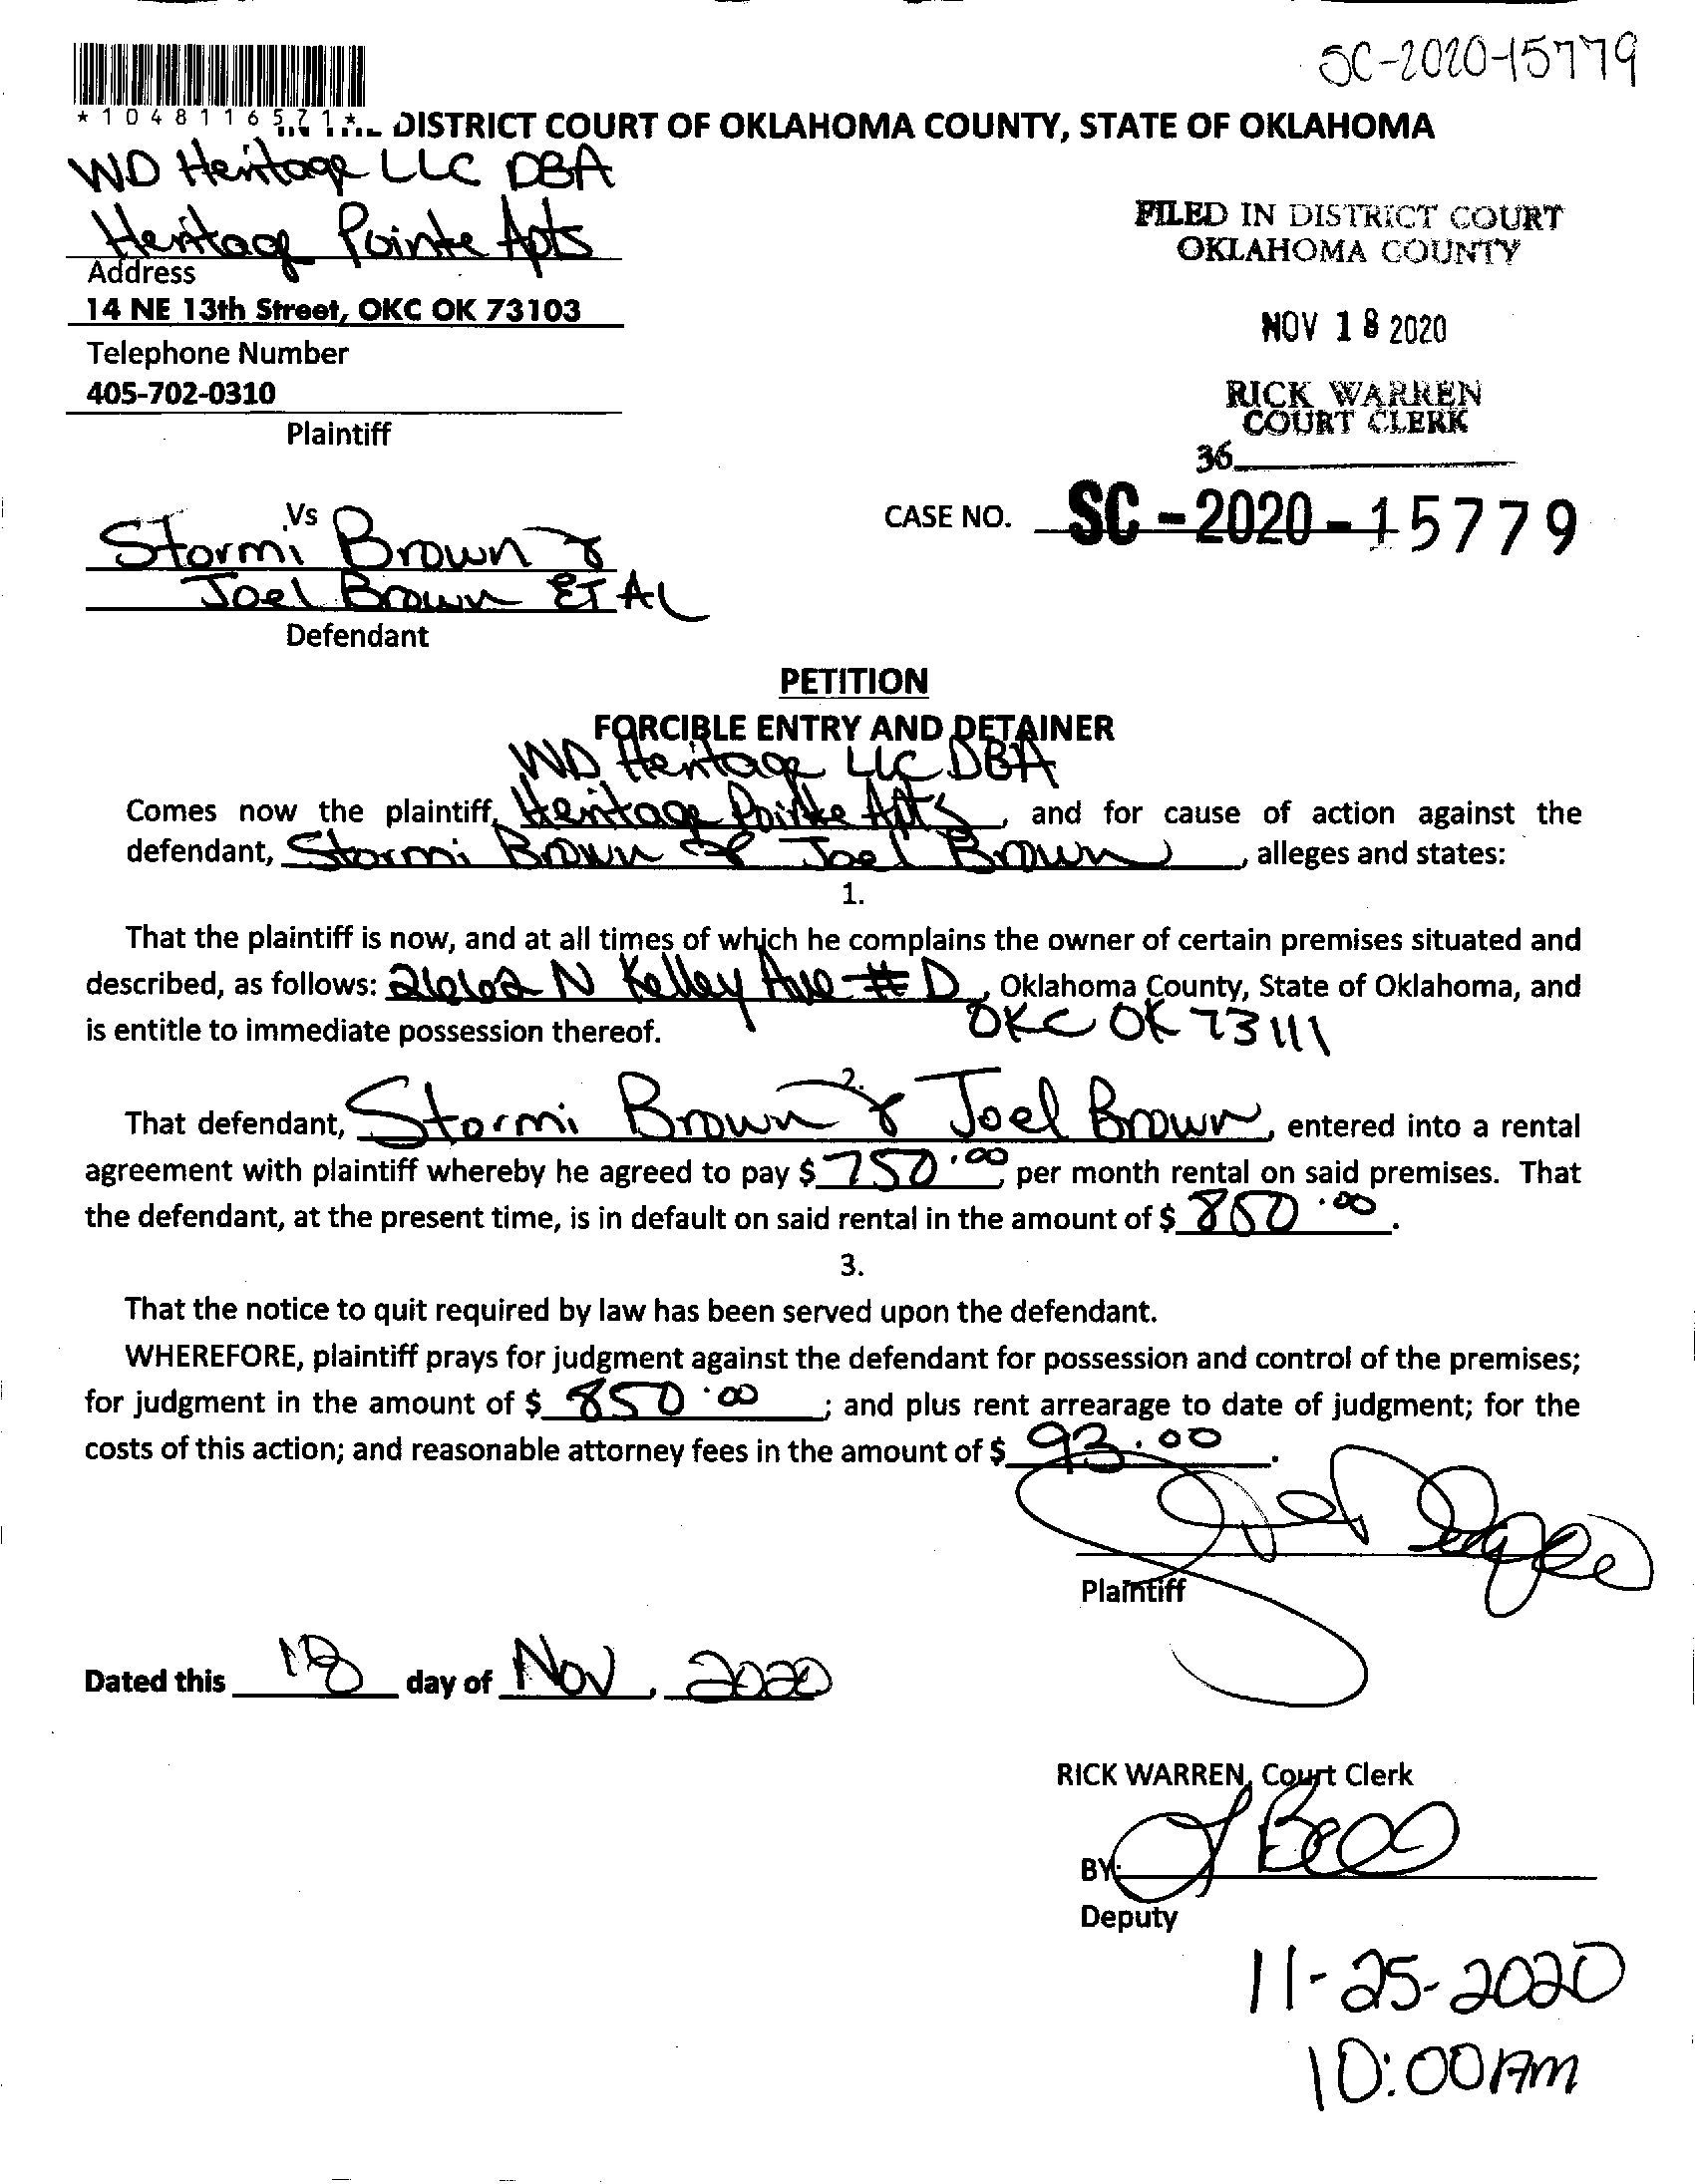 SC-2020-15779
*1048116571*
DISTRICT COURT OF OKLAHOMA COUNTY, STATE OF OKLAHOMA
WD Heritage LLC DBA
Heritage Pointe Apts
Address
14 NE 13th Street, OKC OK 73103
Telephone Number
405-702-0310
Plaintiff
FILED IN DISTRICT COURT
OKLAHOMA COUNTY
NOV 18 2020
RICK WARREN
COURT CLERK
36
Vs
Stormi Brown &
Joel Brown ET AL
Defendant
CASE NO. SC-2020-15779
PETITION
FORCIBLE ENTRY AND DETAINER
WD Heritage LLC DBA
Comes now the plaintiff, Heritage Pointe Apts, and for cause of action against the
defendant, Stormi Brown & Joel Brown, alleges and states:
1.
That the plaintiff is now, and at all times of which he complains the owner of certain premises situated and
described, as follows: 2662 N Kelley Ave #D, Oklahoma County, State of Oklahoma, and
is entitle to immediate possession thereof. OKC OK 73111
2.
That defendant, Stormi Brown & Joel Brown, entered into a rental
agreement with plaintiff whereby he agreed to pay $ 750.00, per month rental on said premises. That
the defendant, at the present time, is in default on said rental in the amount of $ 850.00.
3.
That the notice to quit required by law has been served upon the defendant.
WHEREFORE, plaintiff prays for judgment against the defendant for possession and control of the premises;
for judgment in the amount of $ 850.00; and plus rent arrearage to date of judgment; for the
costs of this action; and reasonable attorney fees in the amount of $ 93.00.
Plaintiff
Dated this 18 day of Nov, 2020
RICK WARREN, Court Clerk
BY:
Deputy
11-25-2020
10:00AM